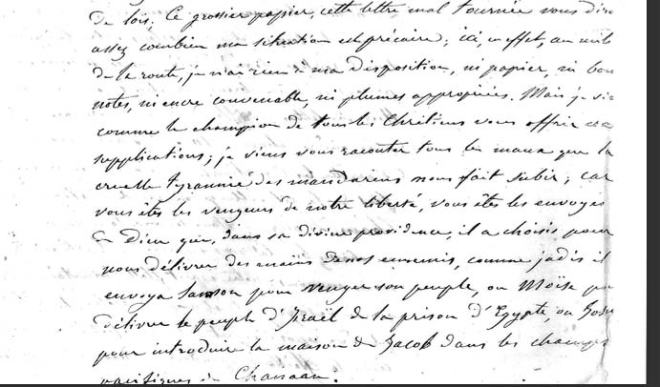 de lois. Ce grossier papier, cette lettre mal tournée vous dira
assez combien ma situation est précaire; ici, en effet, au mili
de la route, je n'ai rien à ma disposition, ni papier, ni bon
notes, ni encre convenable, ni plumes appropriées. Mais je vie
comme le champion de tous les Chrétiens vous offrir ces
supplications; je viens vous raconter tous les maux que la
cruelle tyrannie des mandarins nous fait subir; car
vous êtes les vengeurs de notre liberté, vous êtes les envoyés
de Dieu que, dans sa divine providence, il a choisis pour
nous délivrer des mains de nos ennemis, comme jadis il
envoya Samson pour venger son peuple, ou Moïse pou
délivrer le peuple d'Israël de la prison d'Egypte ou Josu
pour introduire la maison de Jacob dans les champs
pacifiques de Chanaan.